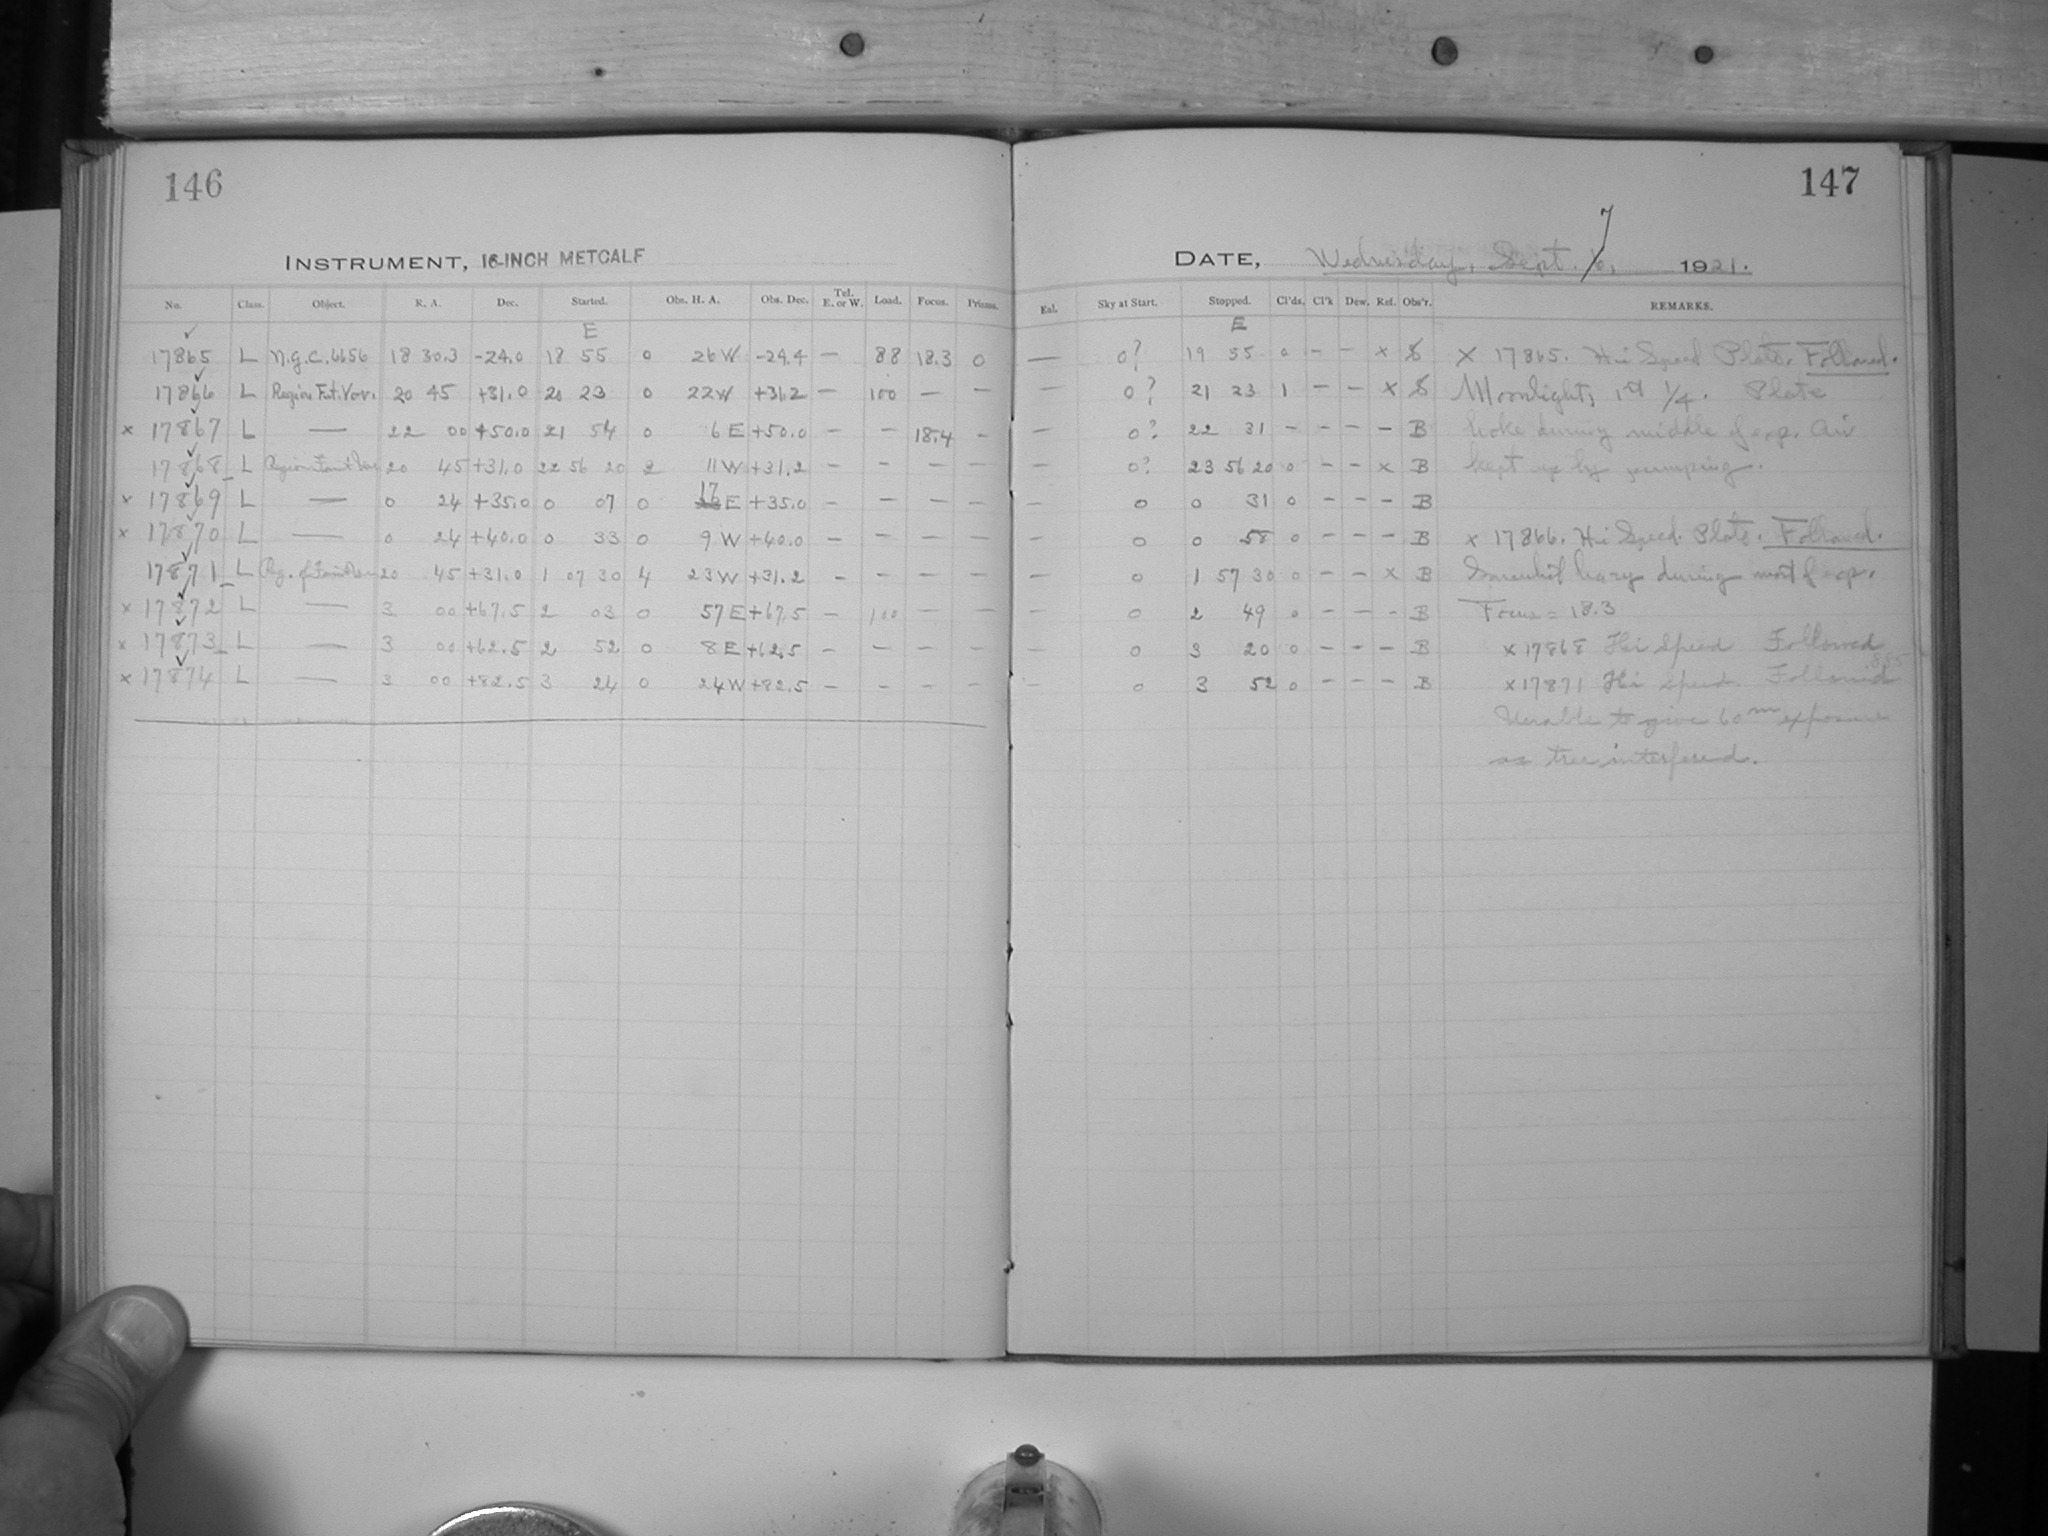 146
INSTRUMENT, 16-INCH METCALF
No. Class. Object. R. A. Dec. Started. Obs. H. A. Obs. Dec. Tel. E. or W. Load. Focus. Prisms.
E
17865 L N.G.C. 6656 18 30.3 -24.0 18 55 0 26 W -24.4 — 88 18.3 0
17866 L Region Fnt. Var. 20 45 +31.0 20 23 0 22 W +31.2 — 100 — —
x 17867 L — 22 00 +50.0 21 54 0 6 E +50.0 — — 18.4 -
17868 L Region Faint Var. 20 45 +31.0 22 56 20 2 11 W +31.2 — — — —
x 17869 L — 0 24 +35.0 0 07 0 17 E +35.0 — — — —
x 17870 L — 0 24 +40.0 0 33 0 9 W +40.0 — — — —
17871 L Reg. of Faint Var 20 45 +31.0 1 07 30 4 23 W +31.2 — — — —
x 17872 L — 3 00 +67.5 2 03 0 57 E +67.5 — 100 — —
x 17873 L — 3 00 +62.5 2 52 0 8 E +62.5 — — — —
x 17874 L — 3 00 +82.5 3 24 0 24 W +82.5 — — — —
147
DATE, Wednesday, Sept. 7, 1921.
Eal. Sky at Start. Stopped. Cl'ds. Cl'k Dew. Ref. Obs'r. REMARKS.
E
— 0? 19 55 0 — — x S x 17865. Hi Speed Plate. Followed.
— 0? 21 23 1 — — x S Moonlight, 1st 1/4. Plate
— 0? 22 31 — — — — B broke during middle of exp. Air
— 0? 23 56 20 0 — — x B kept up by pumping.
— 0 0 31 0 — — — B
— 0 0 58 0 — — — B x 17866. Hi Speed Plate. Followed.
— 0 1 57 30 0 — — x B Somewhat hazy during most of exp.
— 0 2 49 0 — — — B Focus = 18.3
— 0 3 20 0 — — — B x 17868 Hi Speed Followed
— 0 3 52 0 — — — B x 17871 Hi Speed. Followed
Unable to give 60m exposure
as tree interfered.